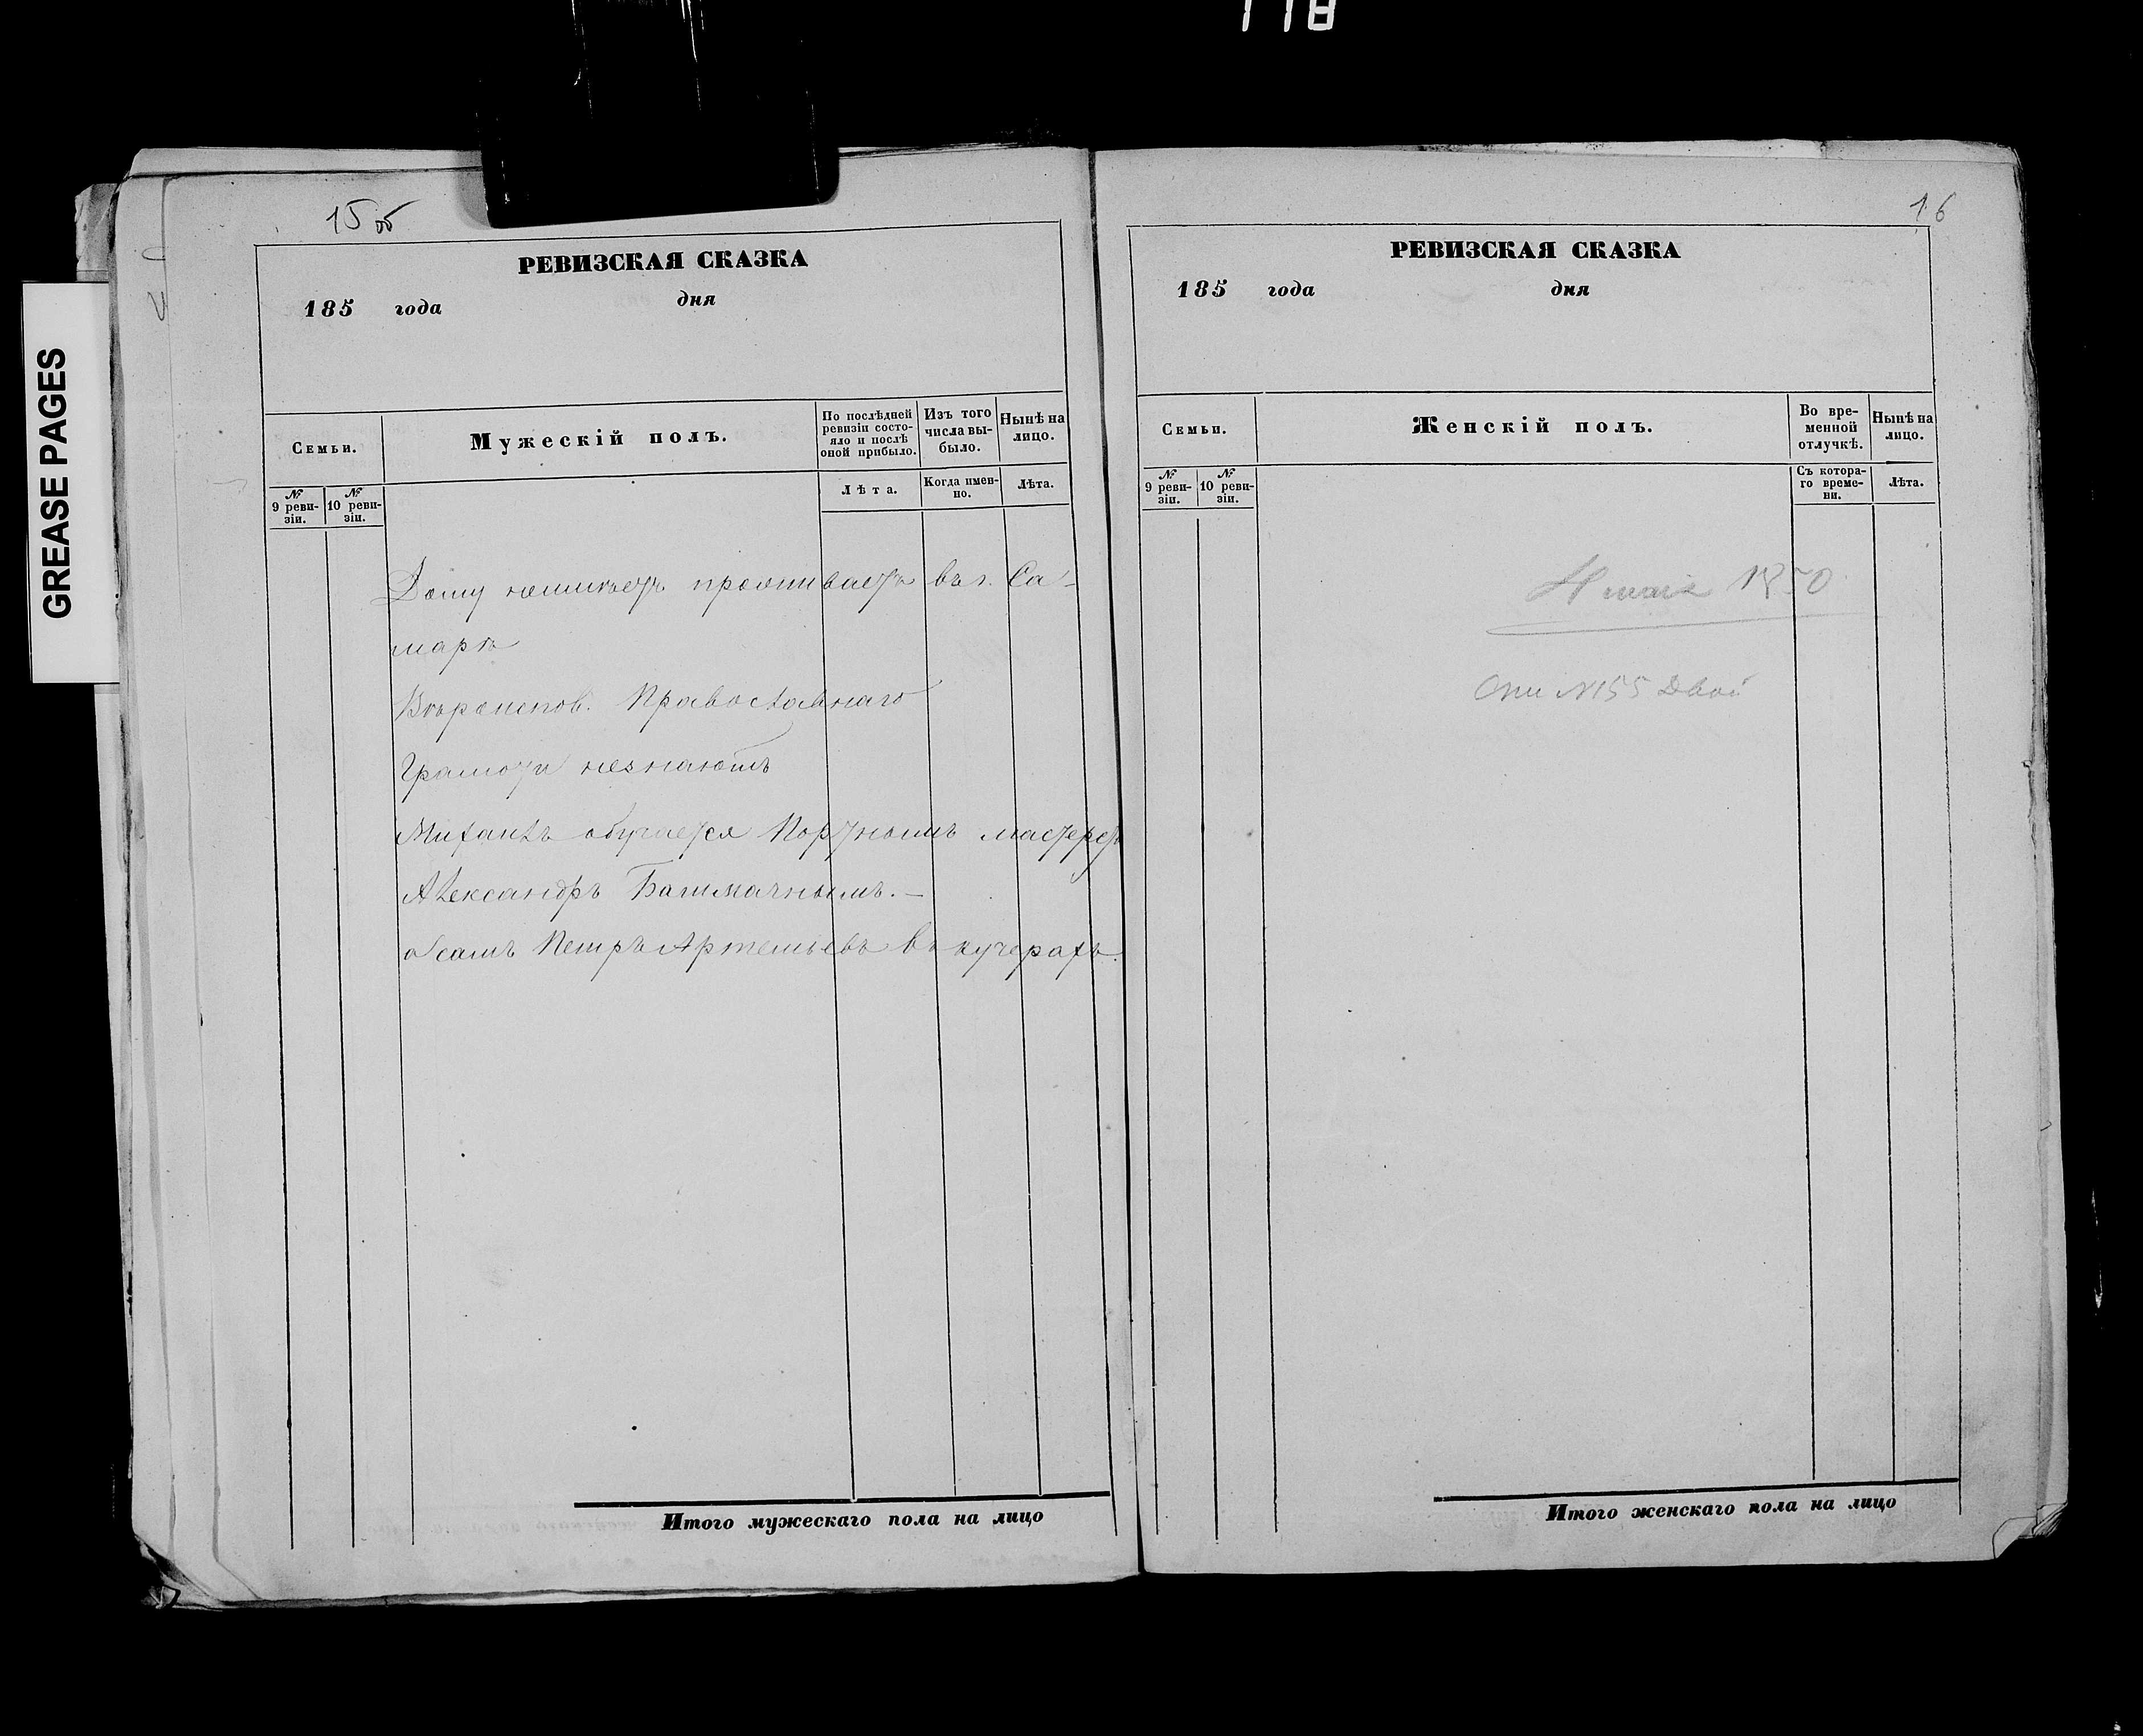 118
GREASE PAGES
15 об
РЕВИЗСКАЯ СКАЗКА
185 года дня
Семьи.
Мужескій полъ.
По послѣдней ревизіи состояло и послѣ оной прибыло.
Изъ того числа выбыло.
Нынѣ на лицо.
№ 9 ревизіи.
№ 10 ревизіи.
Лѣта.
Когда именно.
Лѣта.
Дому неимѣетъ проживаетъ въ г. Са-
марѣ
Вѣроиспов. Православнаго
Грамоти незнаютъ
Михаилъ обучается Портнымъ мастерст
Александръ Башмачнымъ. —
Самъ Петръ Артемьевъ въ кучерахъ.
Итого мужескаго пола на лицо
16
РЕВИЗСКАЯ СКАЗКА
185 года дня
Семьи.
Женскій полъ.
Во временной отлучкѣ.
Нынѣ на лицо.
№ 9 ревизіи.
№ 10 ревизіи.
Съ котораго времени.
Лѣта.
мая 1850
№ 155
Итого женскаго пола на лицо